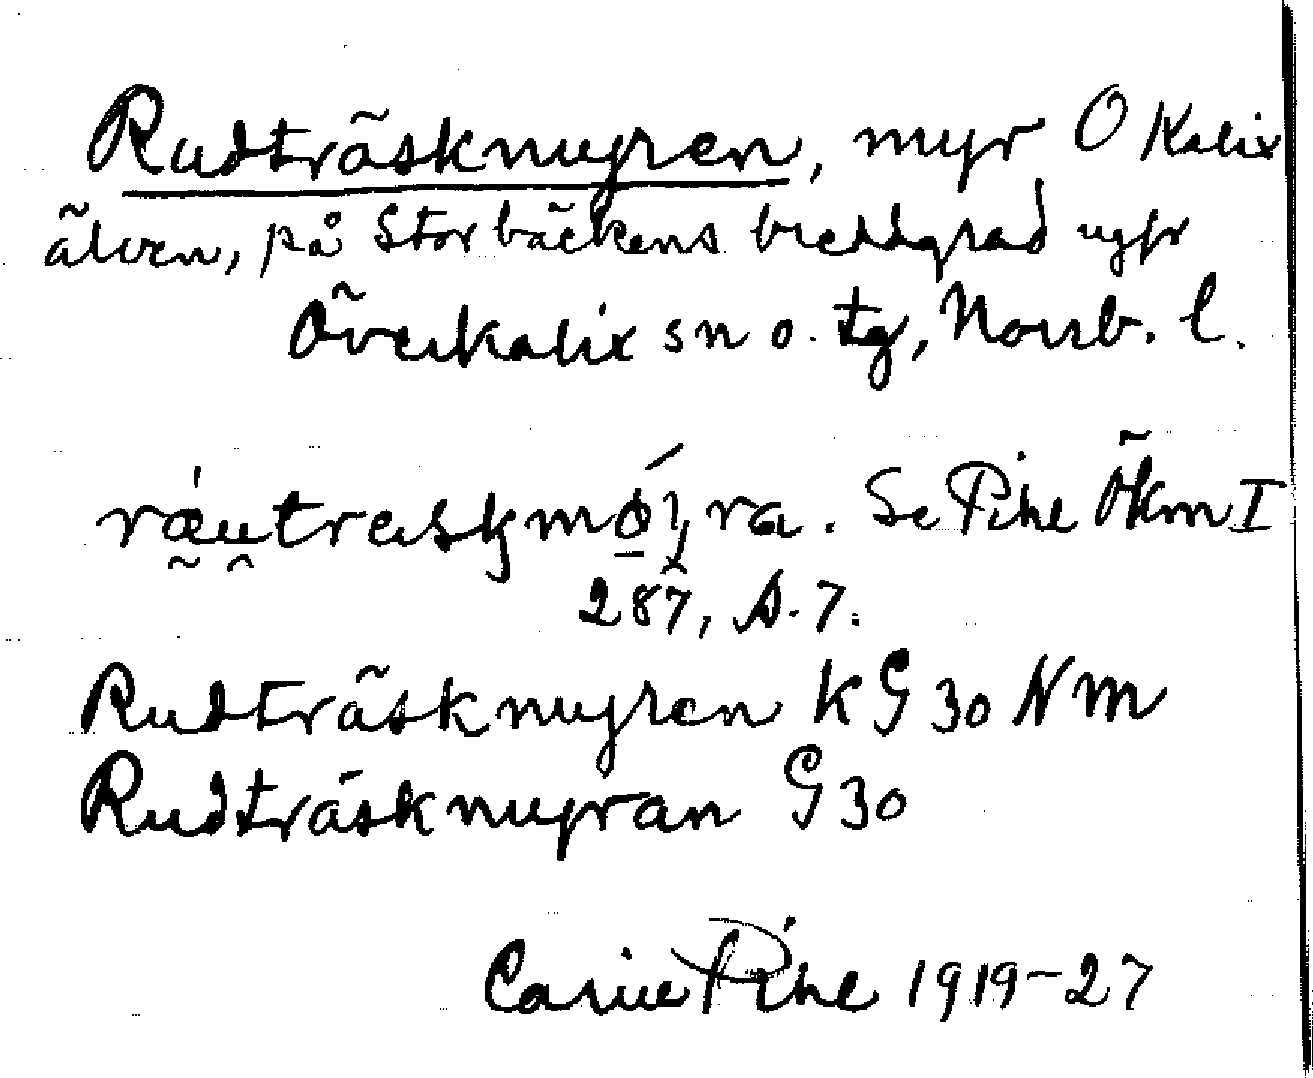 Rudträskmyren, myr O Kalix
älven, på Storbäckens breddgrad
Överkalix sn o. tg, Norrb. l.
ræutreskmøyra. Se Pihl Ökm I
287, s. 7.
Rudträskmyren K G 30 NM
Rudträskmyran G 30
Carin Pihl 1919-27